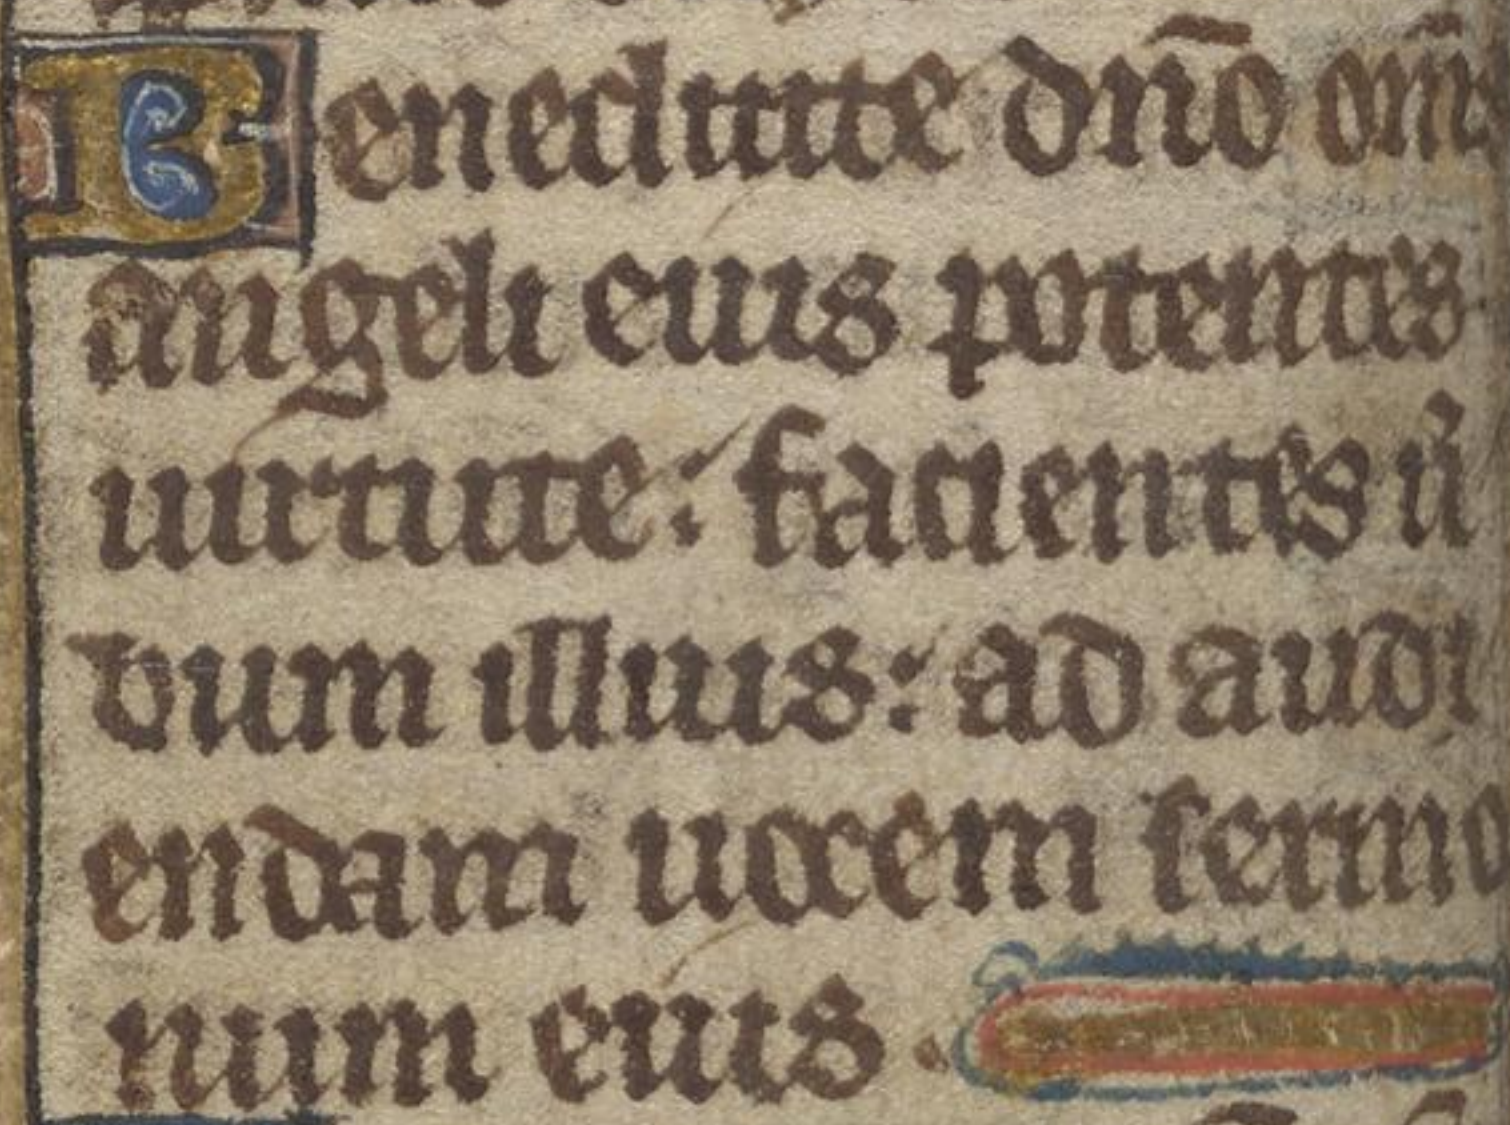 Benedicite dño om̃s
angeli eius potentes
uirtute: facientes u̾
bum illius: ad audi
endam uocem sermo
num eius.